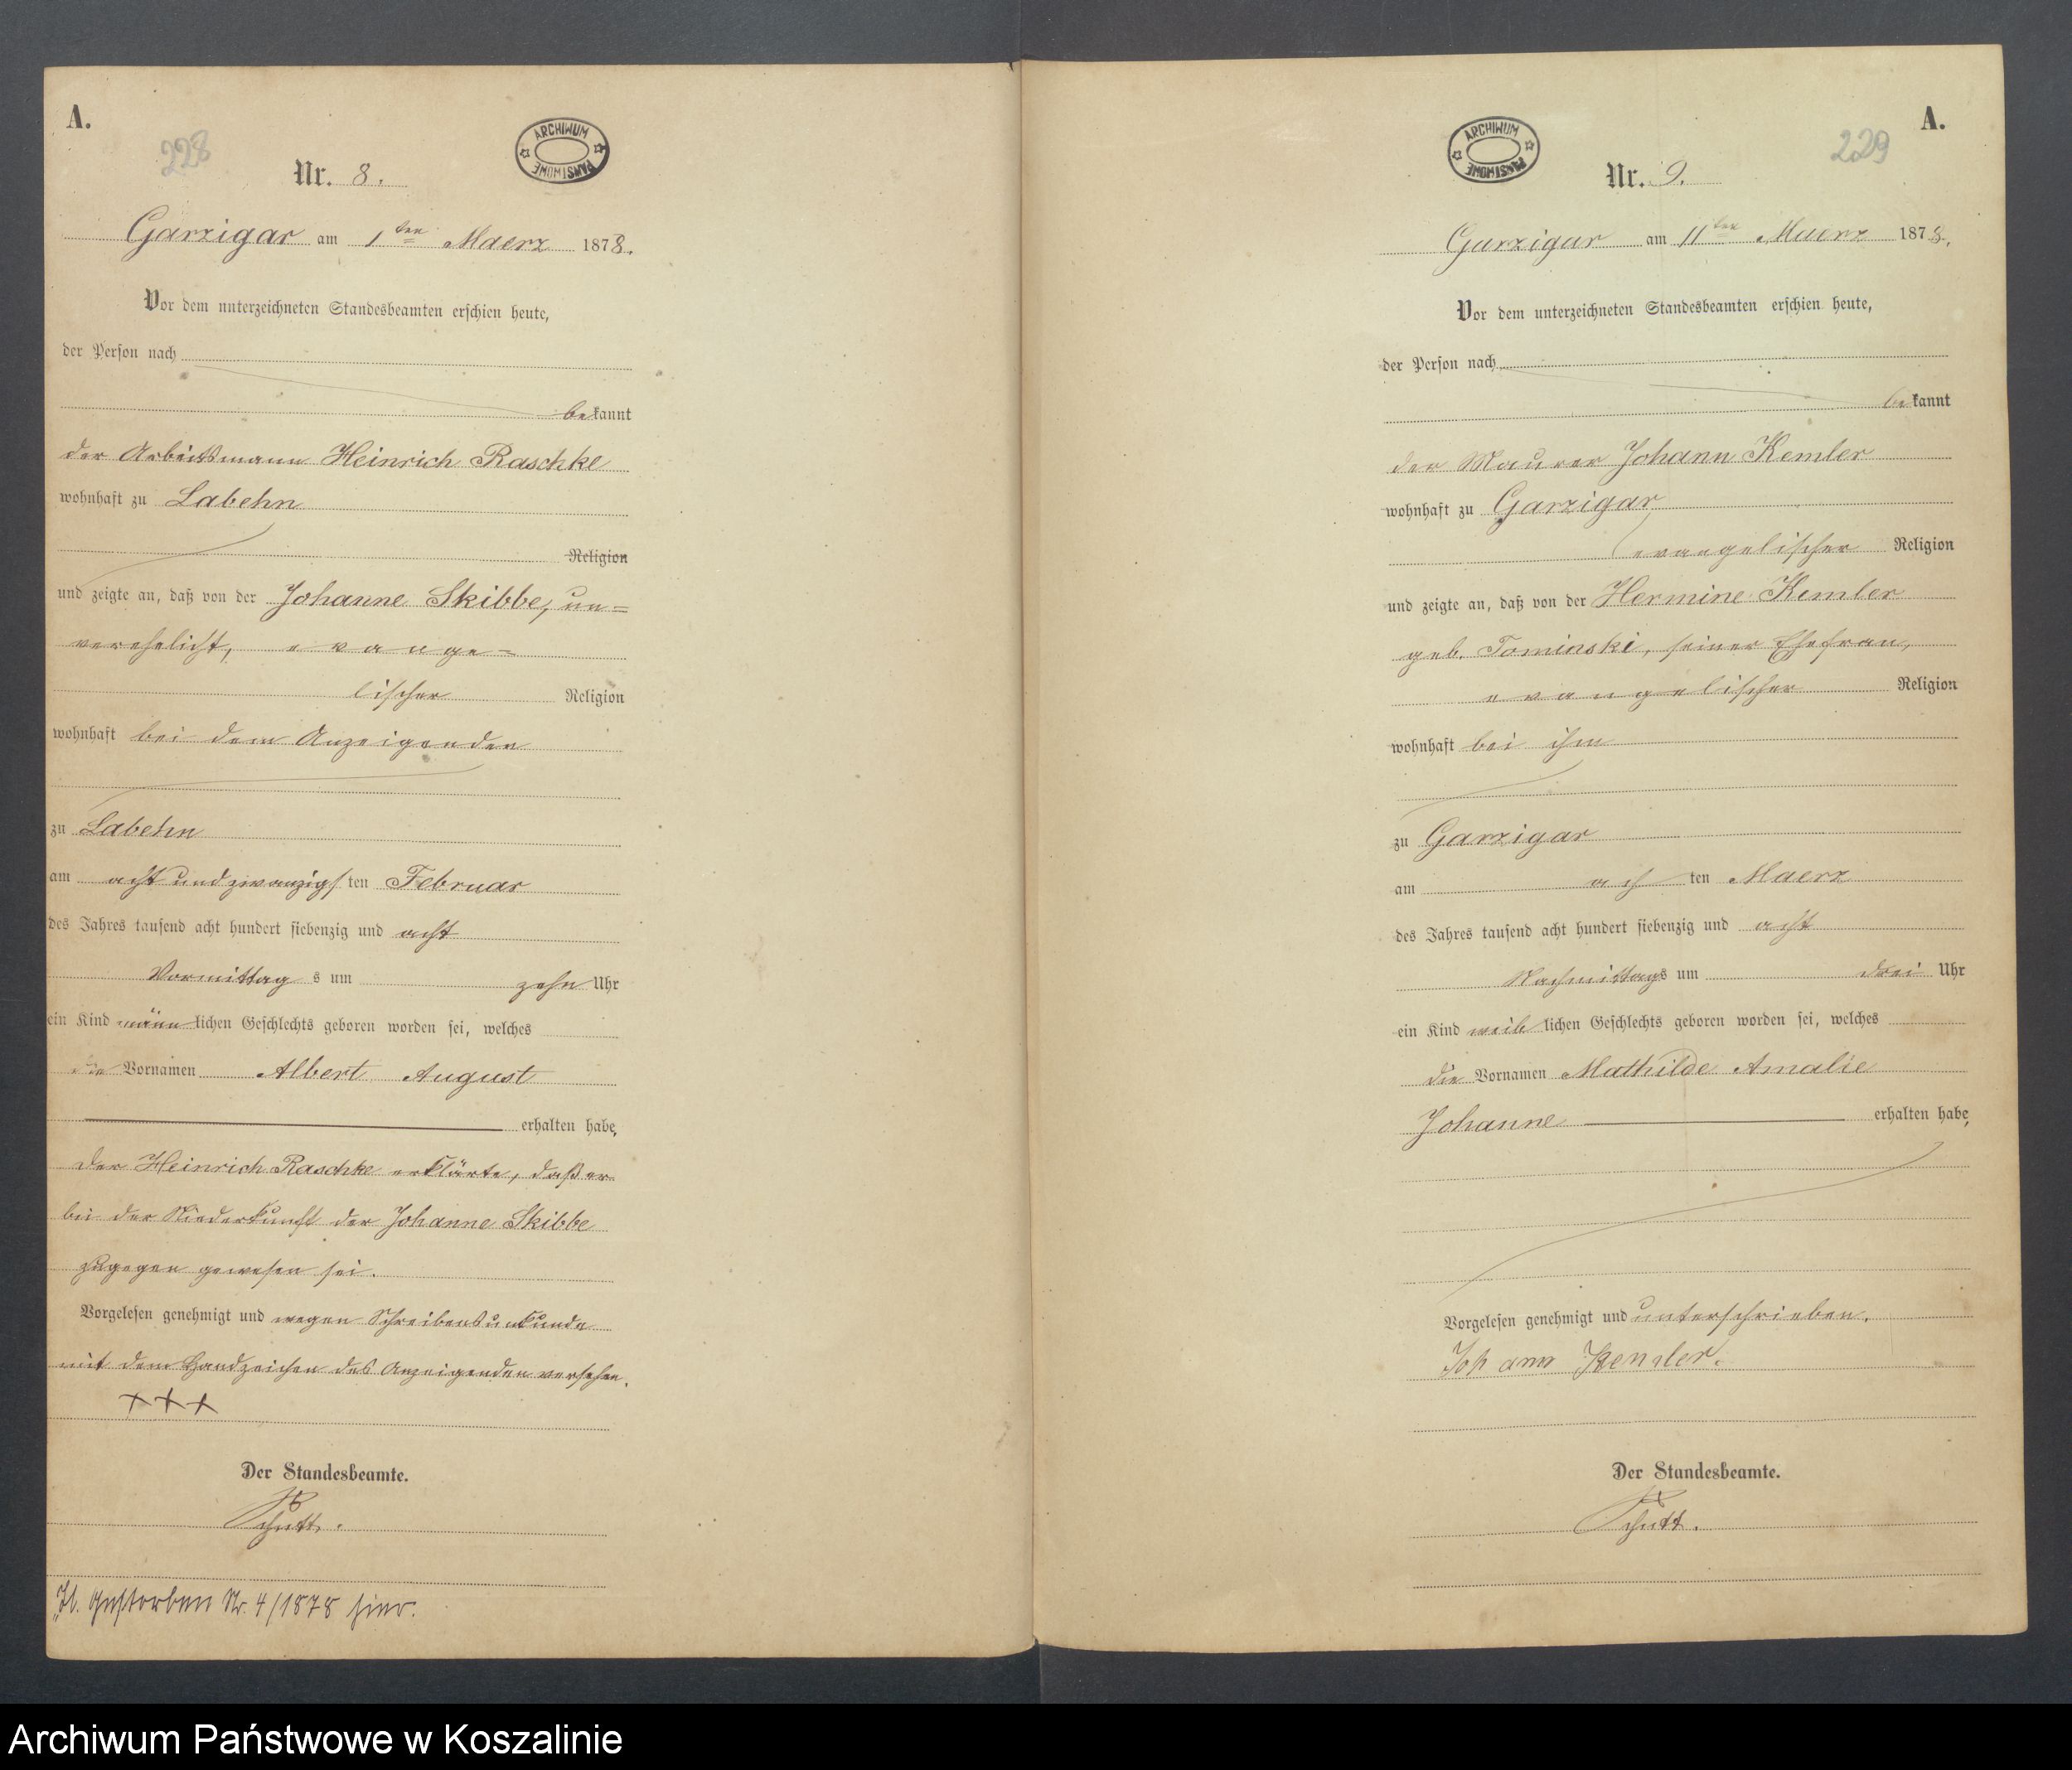 A.
228
Nr. 8.
ARCHIWUM PAŃSTWOWE
Garzigar am 1ten Maerz 1878.
Vor dem unterzeichneten Standesbeamten erschien heute,
der Person nach
bekannt
der Arbeitsmann Heinrich Raschke
wohnhaft zu Labehn
Religion
und zeigte an, daß von der Johanne Skibbe, un=
verehelicht, evange=
lischer Religion
wohnhaft bei dem Anzeigenden
zu Labehn
am acht und zwanzigsten Februar
des Jahres tausend acht hundert siebenzig und acht
Vormittags um zehn Uhr
ein Kind männlichen Geschlechts geboren worden sei, welches
die Vornamen Albert August
erhalten habe,
der Heinrich Raschke erklärte, daß er
bei der Niederkunft der Johanne Skibbe
zugegen gewesen sei.
Vorgelesen genehmigt und wegen Schreibensunkunde
mit dem Handzeichen des Anzeigenden versehen.
+++
Der Standesbeamte.
Schutt.
Gestorben Nr. 4/1878 hier.
A.
229
Nr. 9.
ARCHIWUM PAŃSTWOWE
Garzigar am 11ten Maerz 1878.
Vor dem unterzeichneten Standesbeamten erschien heute,
der Person nach
bekannt
der Maurer Johann Kemler
wohnhaft zu Garzigar
evangelischer Religion
und zeigte an, daß von der Hermine Kemler
geb. Tominski, seiner Ehefrau,
evangelischer Religion
wohnhaft bei ihm
zu Garzigar
am achten Maerz
des Jahres tausend acht hundert siebenzig und acht
Nachmittags um drei Uhr
ein Kind weiblichen Geschlechts geboren worden sei, welches
die Vornamen Mathilde Amalie
Johanne erhalten habe,
Vorgelesen genehmigt und unterschrieben.
Johann Kemler.
Der Standesbeamte.
Schutt.
Archiwum Państwowe w Koszalinie